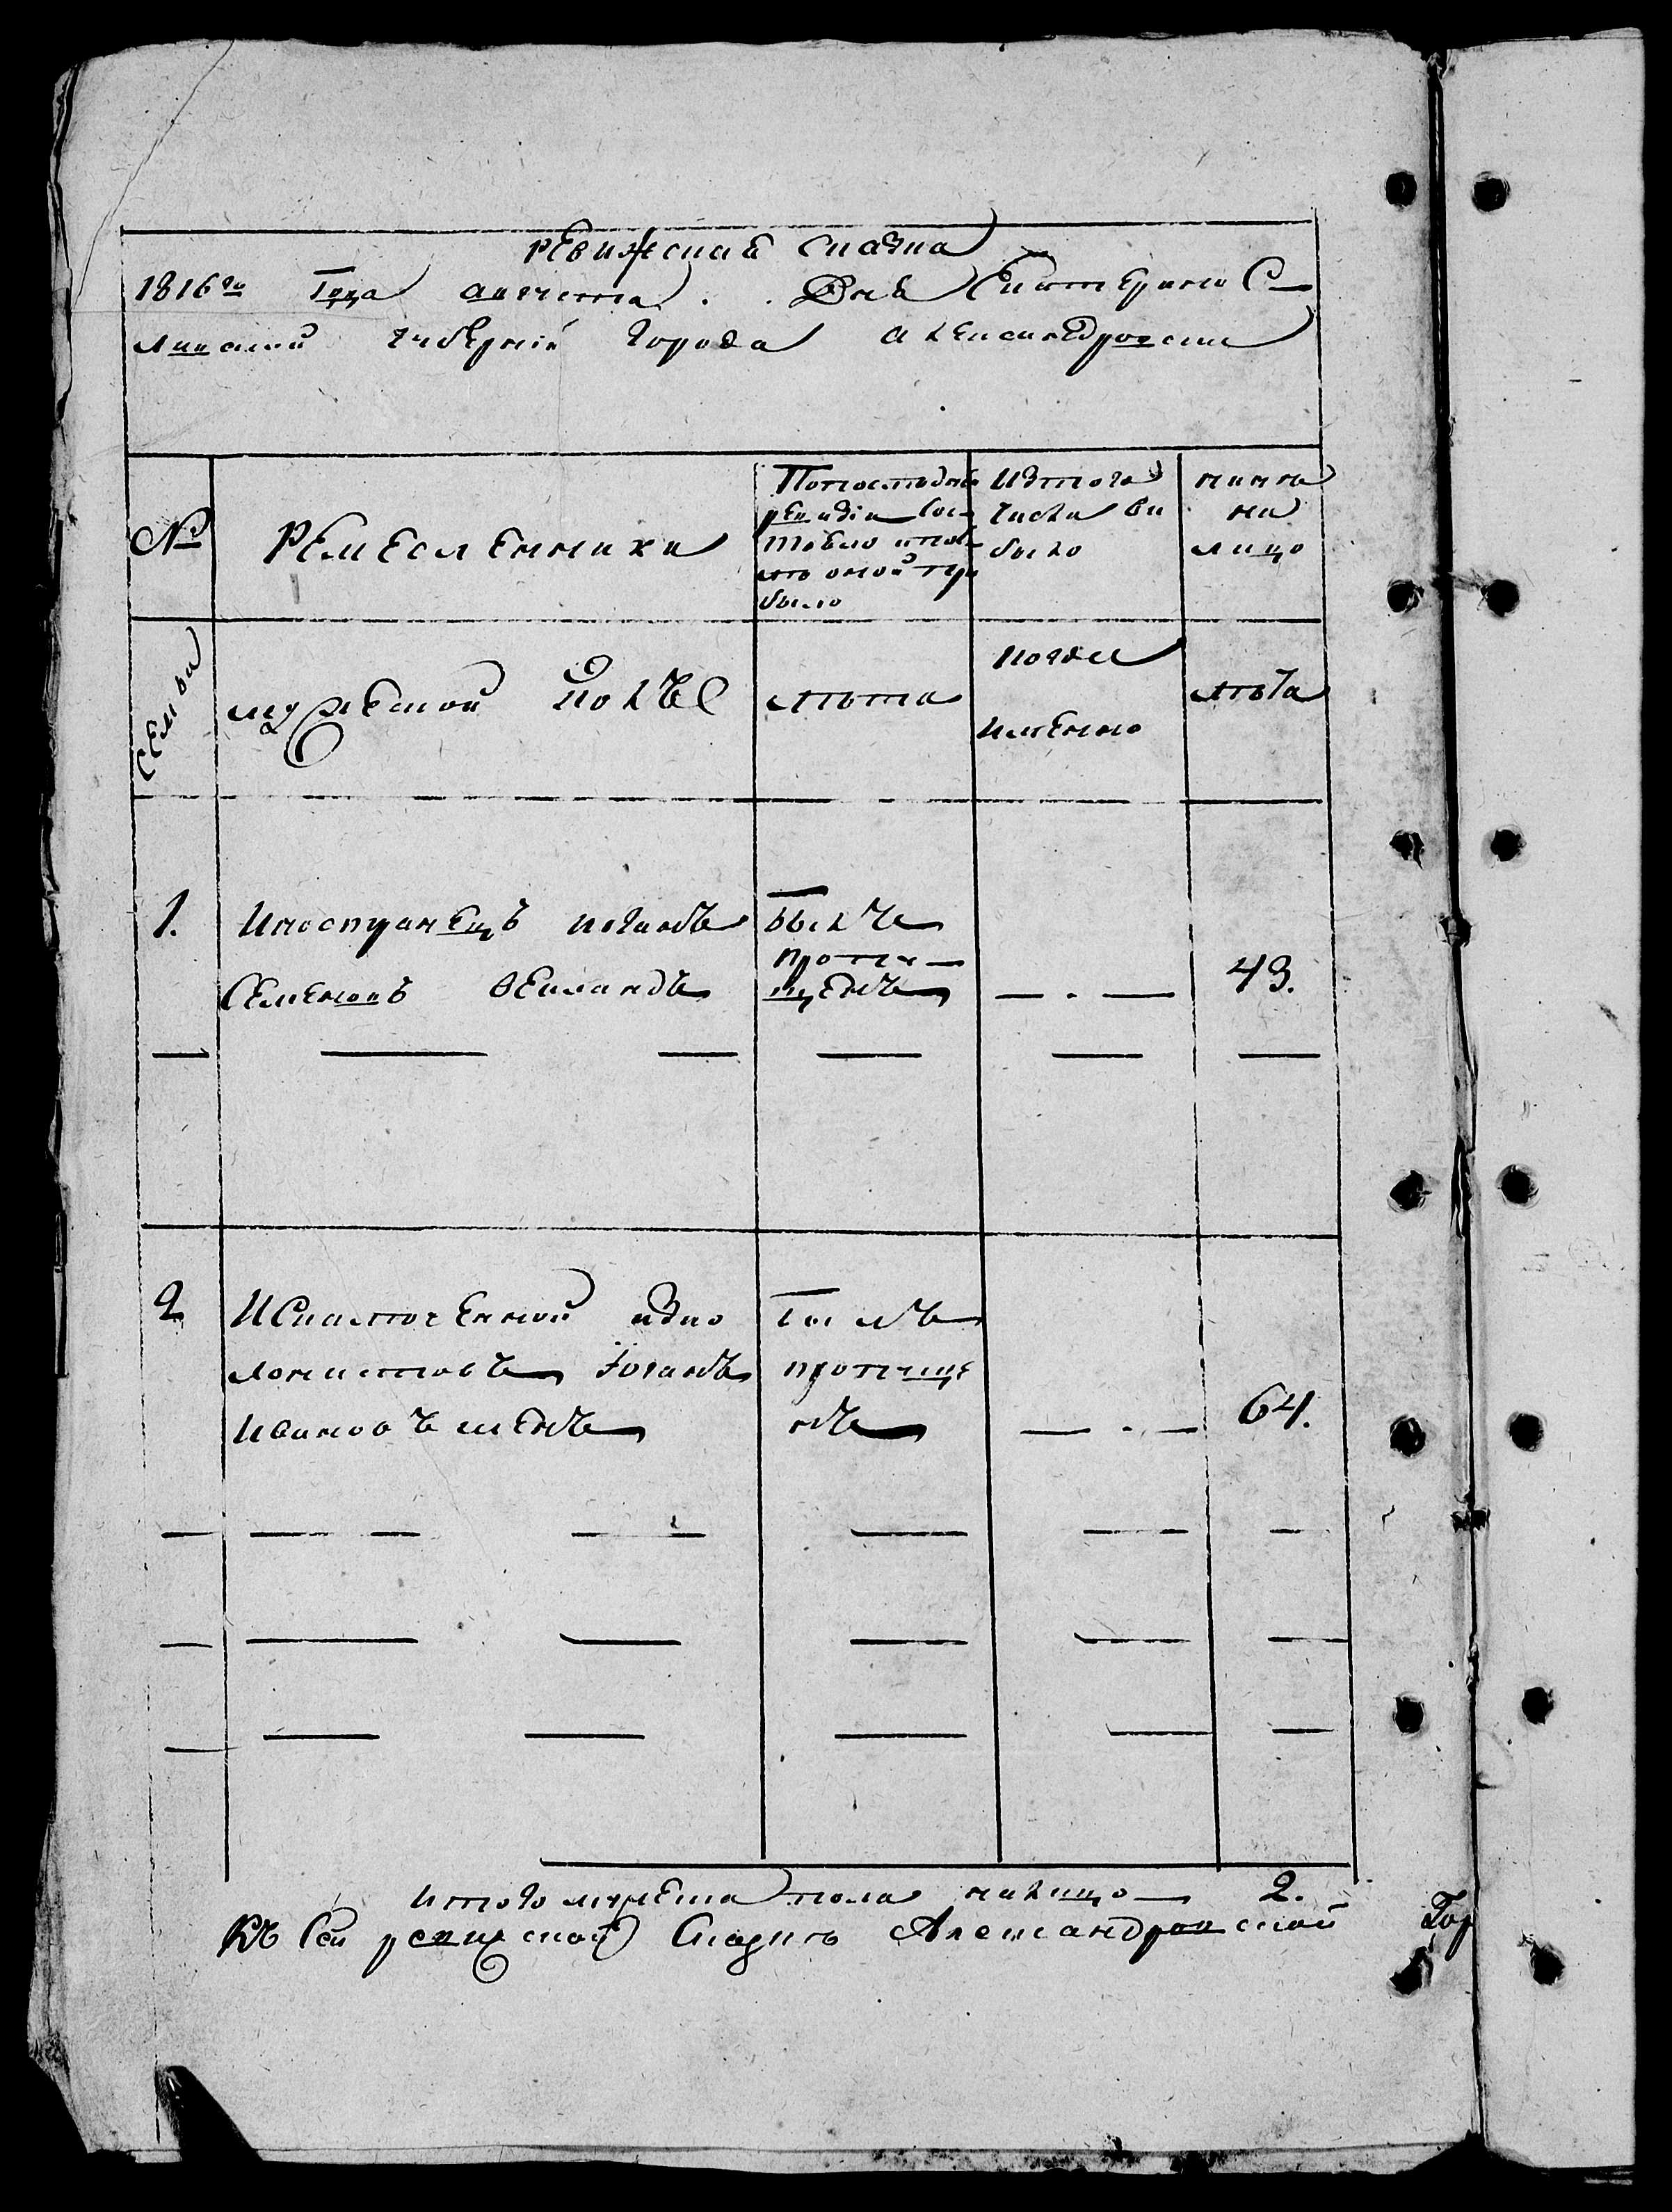 Ревижская сказка
1816го Года августа . . Дня Екатерино С–
лавской губернiи города александровски
№
РЕмЕслЕнники
Попоследней
ревизiи Сос–
тояло ипос–
ле оной при
было
Изтого
числа вы
было
ныне
на
лицо
СЕмьи
мужеской полЪ
лета
когда
имЕнно
лета
1.
ИностранЕцЪ иоганЪ
СЕмЕновЪ вЕиландЪ
былЪ
пропу–
щЕнЪ
— . —
43.
2
ИСключЕнной изко
лонистовЪ Iоганъ
ИвановЪ шЕнЪ
былЪ
пропуще
нЪ
— . —
64.
итого мужЕска пола налицо — 2.
Къ Сей ревижской Сказкъ Александровской Гор